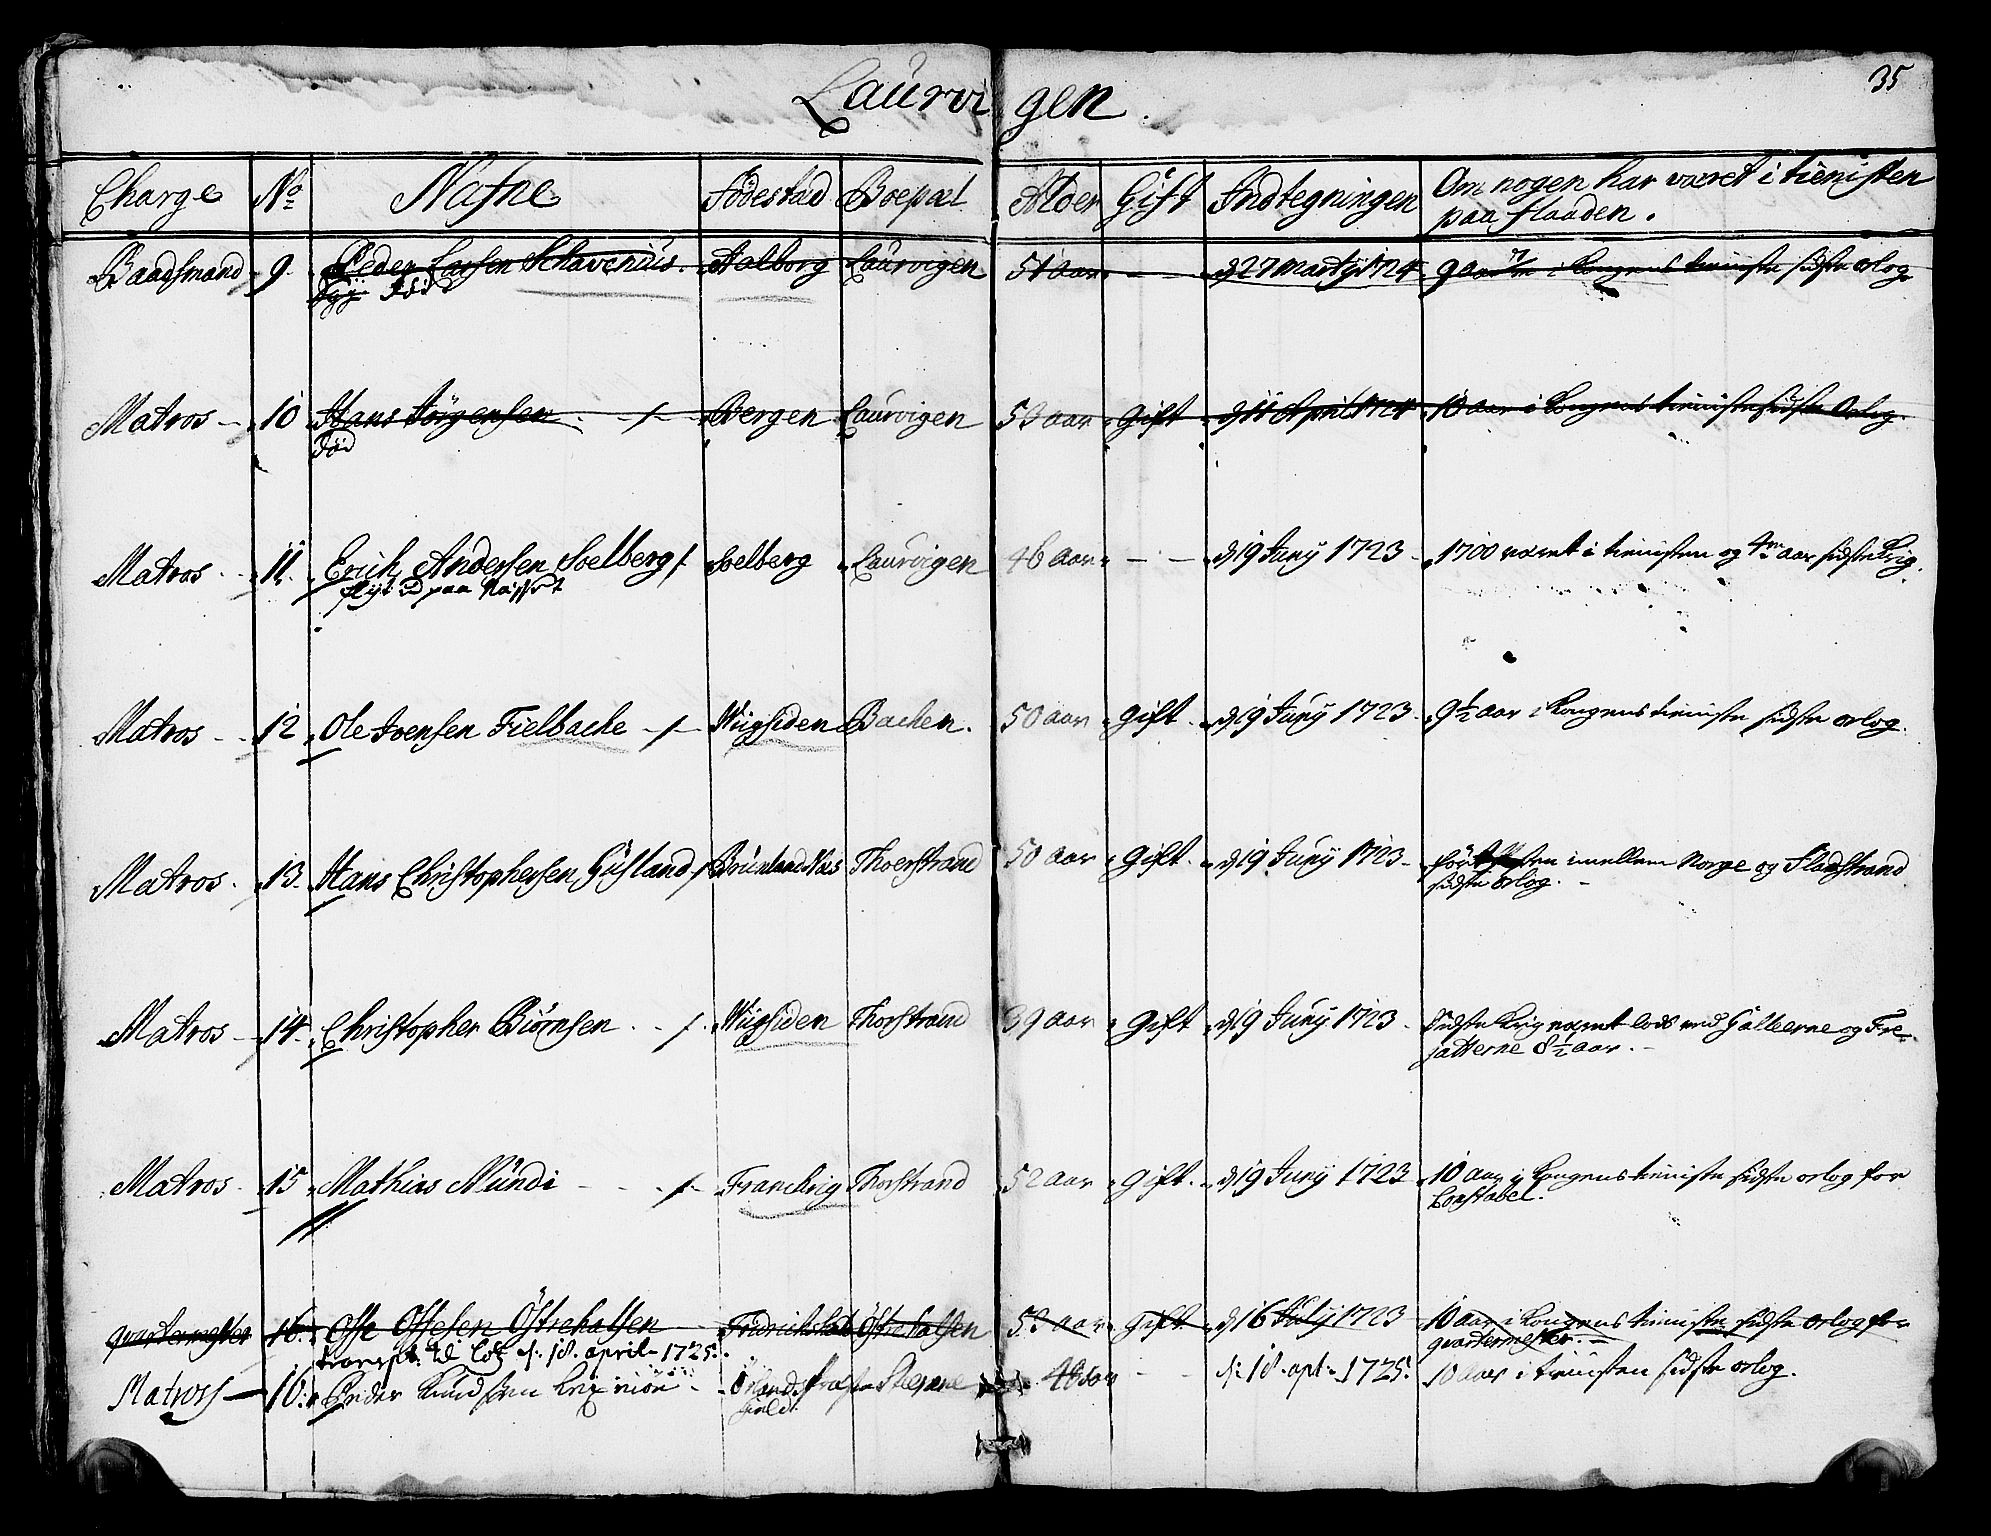 Laurvigen.
35
Charge No Nafne Födestad Boepæl Alder Gift Indtegningen Om nogen har været i tienisten
paa flaaden.
Baadsmand 9. Peder Larsen Schavenius. Aalborg Laurvigen 51 aar - - d 27 Marty 1724 9 aar i Kongens tieniste sidste orlog
död
Matros - 10 Hans Jörgensen - /- Bergen Laurvigen 53 aar Gift d 11 April 1724 10 aar i Kongens tieniste sidste Orlog.
död
Matros. 11. Erich Andersen Soelberg /. Soelberg Laurvigen 46 aar - - d 19 Juny 1723 - 1700 været i tienisten og 4re aar sidste Krig.
ud paa
Matros - 12 Ole Ivensen Fielbacke -/- Wiigsiden Bachen. 50 aar Gift. d 19 Juny 1723 - 9½ aar i Kongens tieniste sidste orlog.
Matros. 13. Hans Christophersen Gusland / Thoerstrand 50 aar Gift. d 19 Juny 1723 - imellem Norge og Fladstrand
sidste orlog. -
Matros - 14. Christopher Biörnsen. - /. Wiigsiden Thorstrand 39 aar Gift d 19 Juny 1723 - Sidste Krig været lods med Galleerne og Fre-
gatterne 8½ aar. -
Matros. 15 Mathias Mündi - - -/- Franckrig Thorstrand 52 aar Gift. d 19 Juny 1723 10 aar i Kongens tieniste sidste orlog for
Constabel.
quartermester 16. Offe Offesen Östrehalsen Fridrichshald Östrehalsen 53 aar Gift. d 16 July 1723 10 aar i Kongens tieniste sidste orlog for
transpt. til d: 18. april - 1725. quartermester. -
Matross - 16. Peder Knudsen - Steyrne 48 aar - - d: 18. apl - 1725. 10 aar i tienisten sidste orlog.